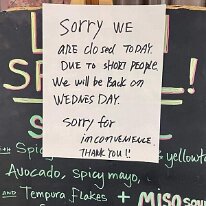 Sorry WE
are closed TODAY.
DUE TO SHORT PEOPLE.
We will be Back on
WEDNES DAY.
Sorry for
inconvenience
THANK YOU!!
Spicy
& yellowta
Avocado, Spicy mayo,
AND Tempura Flakes + MISO SOU